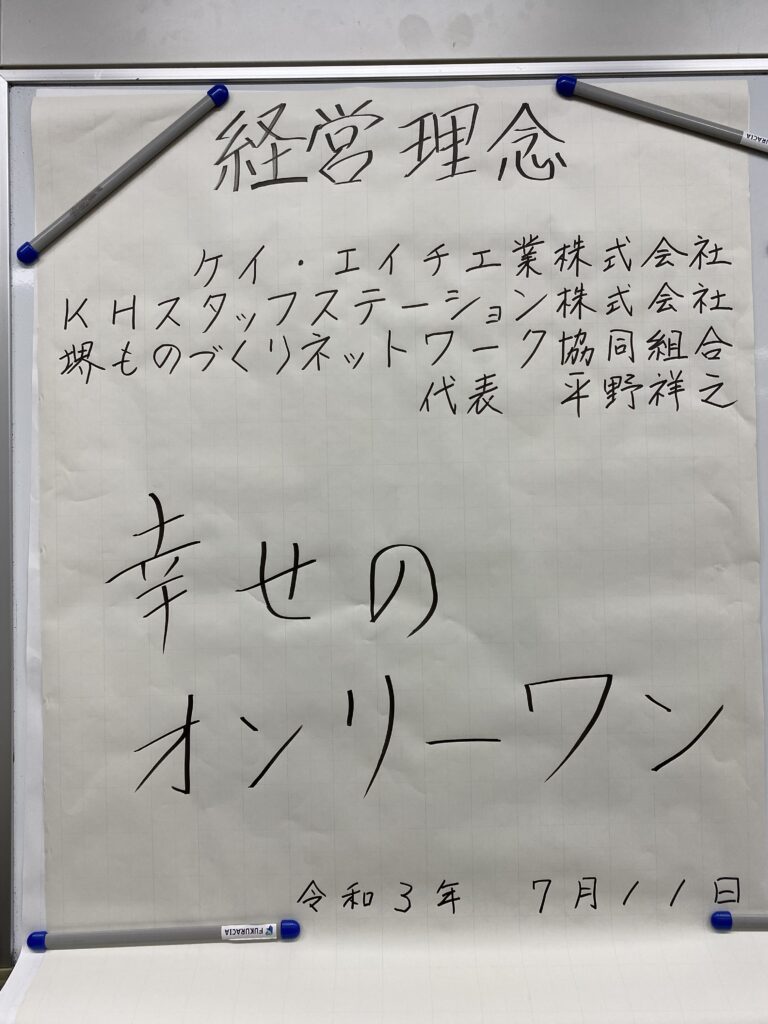 経営理念
ケイ・エイチ工業株式会社
KHスタッフステーション株式会社
堺ものづくりネットワーク協同組合
代表　平野祥之
幸せの
オンリーワン
令和3年　7月11日
FUKURACIA